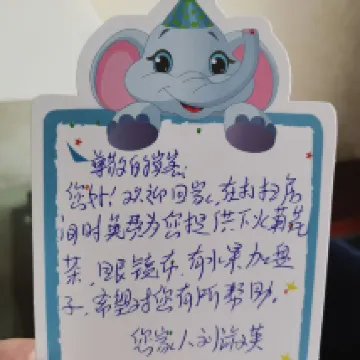 尊敬的宾客:
您好!欢迎回家,在打扫房
间时英英为您提供下火菊花
茶,眼镜布,有水果加盘
子,希望对您有所帮助。
您家人刘